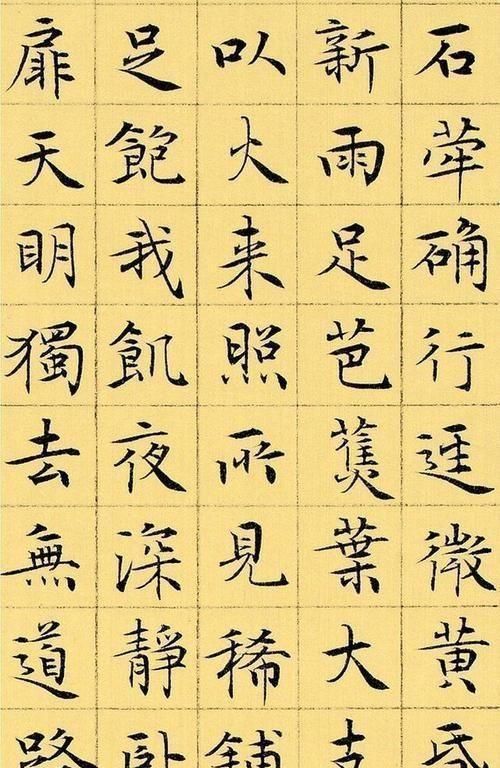 石荦确行逕微黄昏
新雨足芭蕉葉大支
以火来照所見稀鋪
足飽我飢夜深靜卧
扉天明獨去無道路